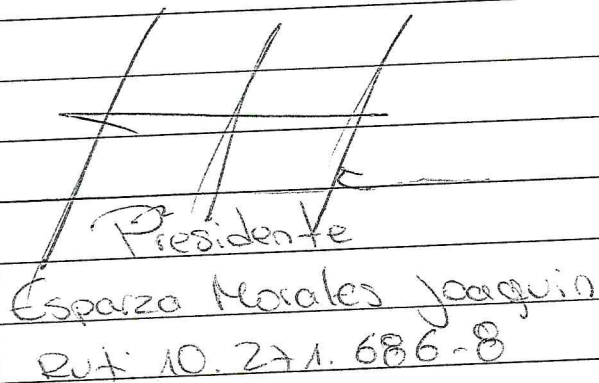 Presidente
Esparza Morales Joaquin
Rut: 10.271.686-8